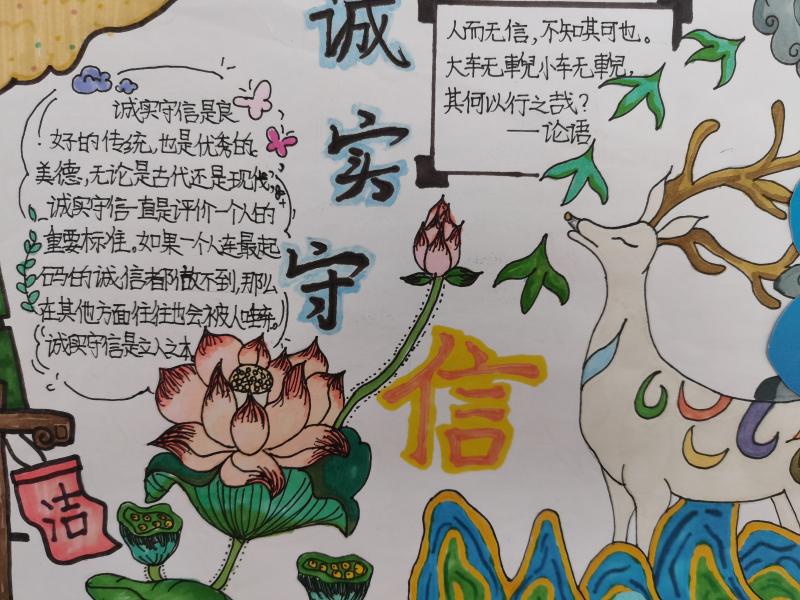 诚
实
守
信
人而无信，不知其可也。
大车无輗小车无軏，
其何以行之哉？
——论语
诚实守信是良
好的传统，也是优秀的
美德，无论是古代还是现代，
诚实守信一直是评价一个人的
重要标准。如果一个人连最起
码的诚信都做不到，那么
在其他方面往往也会被人唾弃。
诚实守信是立人之本
洁